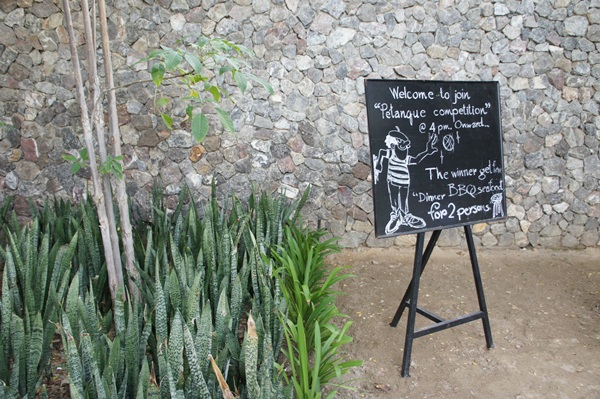 Welcome to join
"Pelanque competition"
@ 4 pm. Onward...
The winner get free
"Dinner BBQ seafood
for 2 persons